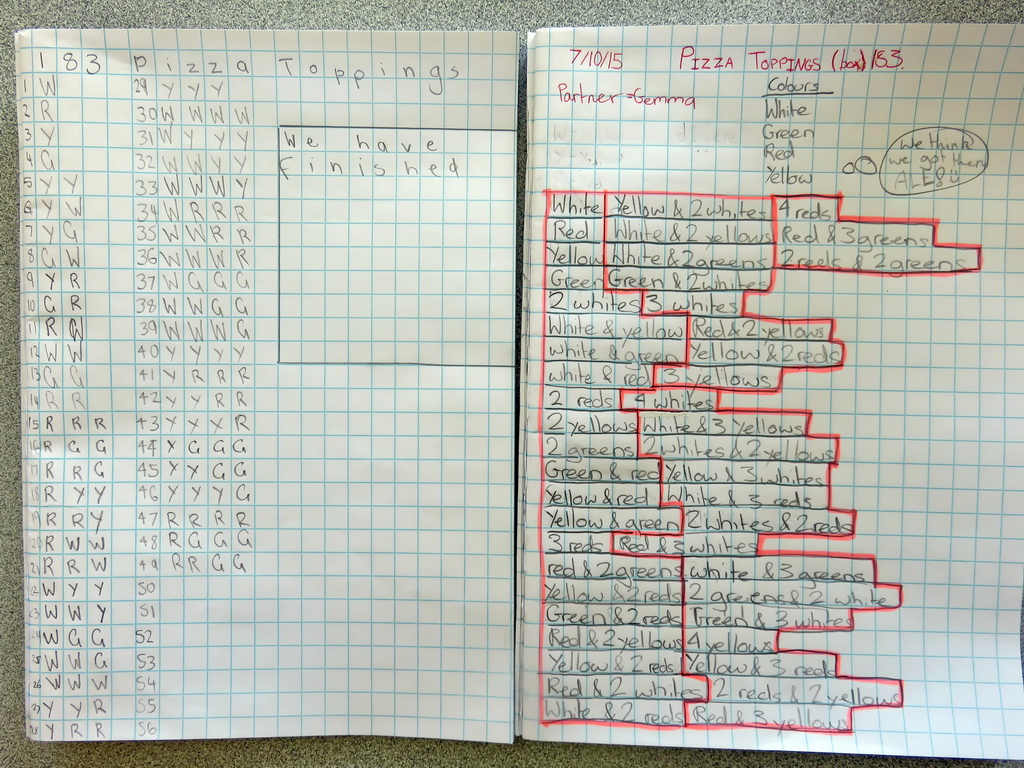 183 Pizza Toppings
1 W
2 R
3 Y
4 G
5 Y Y
6 Y W
7 Y G
8 G W
9 Y R
10 G R
11 R G
12 W W
13 G G
14 R R
15 R R R
16 R G G
17 R R G
18 R Y Y
19 R R Y
20 R W W
21 R R W
22 W Y Y
23 W W Y
24 W G G
25 W W G
26 W W W
27 Y Y R
28 Y R R
29 Y Y Y
30 W W W W
31 W Y Y Y
32 W W Y Y
33 W W W Y
34 W R R R
35 W W R R
36 W W W R
37 W G G G
38 W W G G
39 W W W G
40 Y Y Y Y
41 Y R R R
42 Y Y R R
43 Y Y Y R
44 Y G G G
45 Y Y G G
46 Y Y Y G
47 R R R R
48 R G G G
49 R R G G
50
51
52
53
54
55
56
We have
finished
7/10/15 PIZZA TOPPINGS (box) 183.
Partner = Gemma
Colours
White
Green
Red
Yellow
We think
we got them
ALL
White Yellow & 2 whites 4 reds
Red White & 2 yellows Red & 3 greens
Yellow White & 2 greens 2 reds & 2 greens
Green Green & 2 whites
2 whites 3 whites
White & yellow Red & 2 yellows
white & green Yellow & 2 reds
white & red 3 yellows
2 reds 4 whites
2 yellows White & 3 yellows
2 greens 2 whites & 2 yellows
Green & red Yellow & 3 whites
Yellow & red White & 3 reds
Yellow & green 2 whites & 2 reds
3 reds Red & 3 whites
red & 2 greens white & 3 greens
Yellow & 2 reds 2 greens & 2 white
Green & 2 reds Green & 3 whites
Red & 2 yellows 4 yellows
Yellow & 2 reds Yellow & 3 reds
Red & 2 whites 2 reds & 2 yellows
White & 2 reds Red & 3 yellows